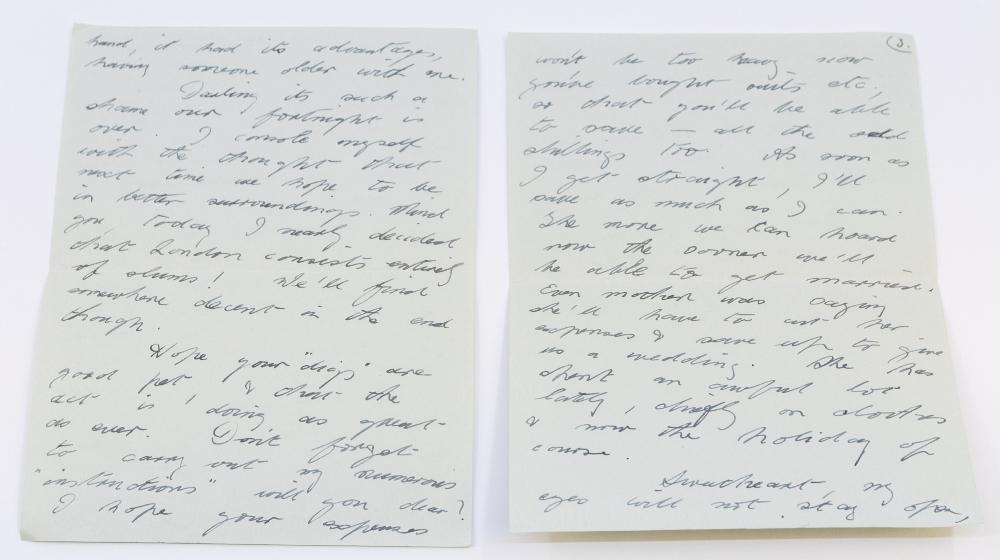 hand, it had its advantages,
having someone older with me.
Darling its such a
shame our fortnight is
over. I console myself
with the thought that
next time we hope to be
in better surroundings. Mind
you today I nearly decided
that London consists entirely
of slums! We'll find
somewhere decent in the end
though.
Hope your "digs" are
good pet & that the
act is doing as great
as ever. Don't forget
to carry out my numerous
"instructions" will you dear?
I hope your expenses
3.
won't be too heavy now
you've bought suits etc,
so that you'll be able
to save - all the odd
shillings too. As soon as
I get straight, I'll
save as much as I can.
The more we can hoard
now the sooner we'll
be able to get married.
Even mother was saying
she'll have to cut her
expenses & save up to give
us a wedding. She has
spent an awful lot
lately, chiefly on clothes
& now the holiday of
course.
Sweetheart, my
eyes will not stay open,